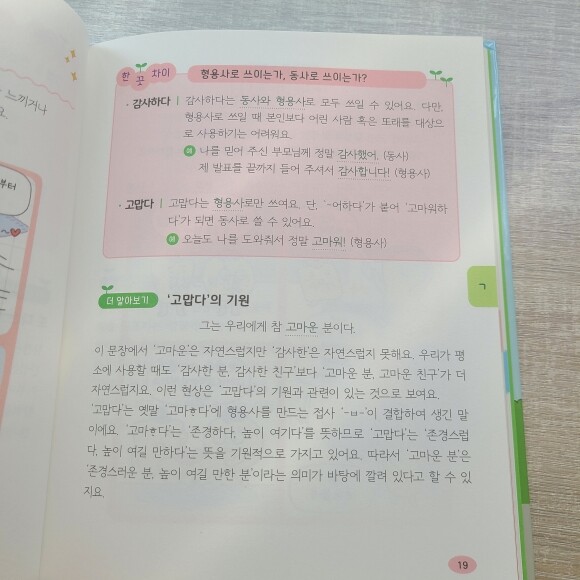 느끼거나
요.
부터
한 끗 차이
형용사로 쓰이는가, 동사로 쓰이는가?
· 감사하다 | 감사하다는 동사와 형용사로 모두 쓰일 수 있어요. 다만,
형용사로 쓰일 때 본인보다 어린 사람 혹은 또래를 대상으
로 사용하기는 어려워요.
예 나를 믿어 주신 부모님께 정말 감사했어. (동사)
제 발표를 끝까지 들어 주셔서 감사합니다! (형용사)
· 고맙다 | 고맙다는 형용사로만 쓰여요. 단, '-어하다'가 붙어 '고마워하
다'가 되면 동사로 쓸 수 있어요.
예 오늘도 나를 도와줘서 정말 고마워! (형용사)
ㄱ
더 알아보기 '고맙다'의 기원
그는 우리에게 참 고마운 분이다.
이 문장에서 '고마운'은 자연스럽지만 '감사한'은 자연스럽지 못해요. 우리가 평
소에 사용할 때도 '감사한 분, 감사한 친구'보다 '고마운 분, 고마운 친구'가 더
자연스럽지요. 이런 현상은 '고맙다'의 기원과 관련이 있는 것으로 보여요.
'고맙다'는 옛말 '고마ᄒᆞ다'에 형용사를 만드는 접사 '-ㅂ-'이 결합하여 생긴 말
이에요. '고마ᄒᆞ다'는 '존경하다, 높이 여기다'를 뜻하므로 '고맙다'는 '존경스럽
다, 높이 여길 만하다'는 뜻을 기원적으로 가지고 있어요. 따라서 '고마운 분'은
'존경스러운 분, 높이 여길 만한 분'이라는 의미가 바탕에 깔려 있다고 할 수 있
지요.
19